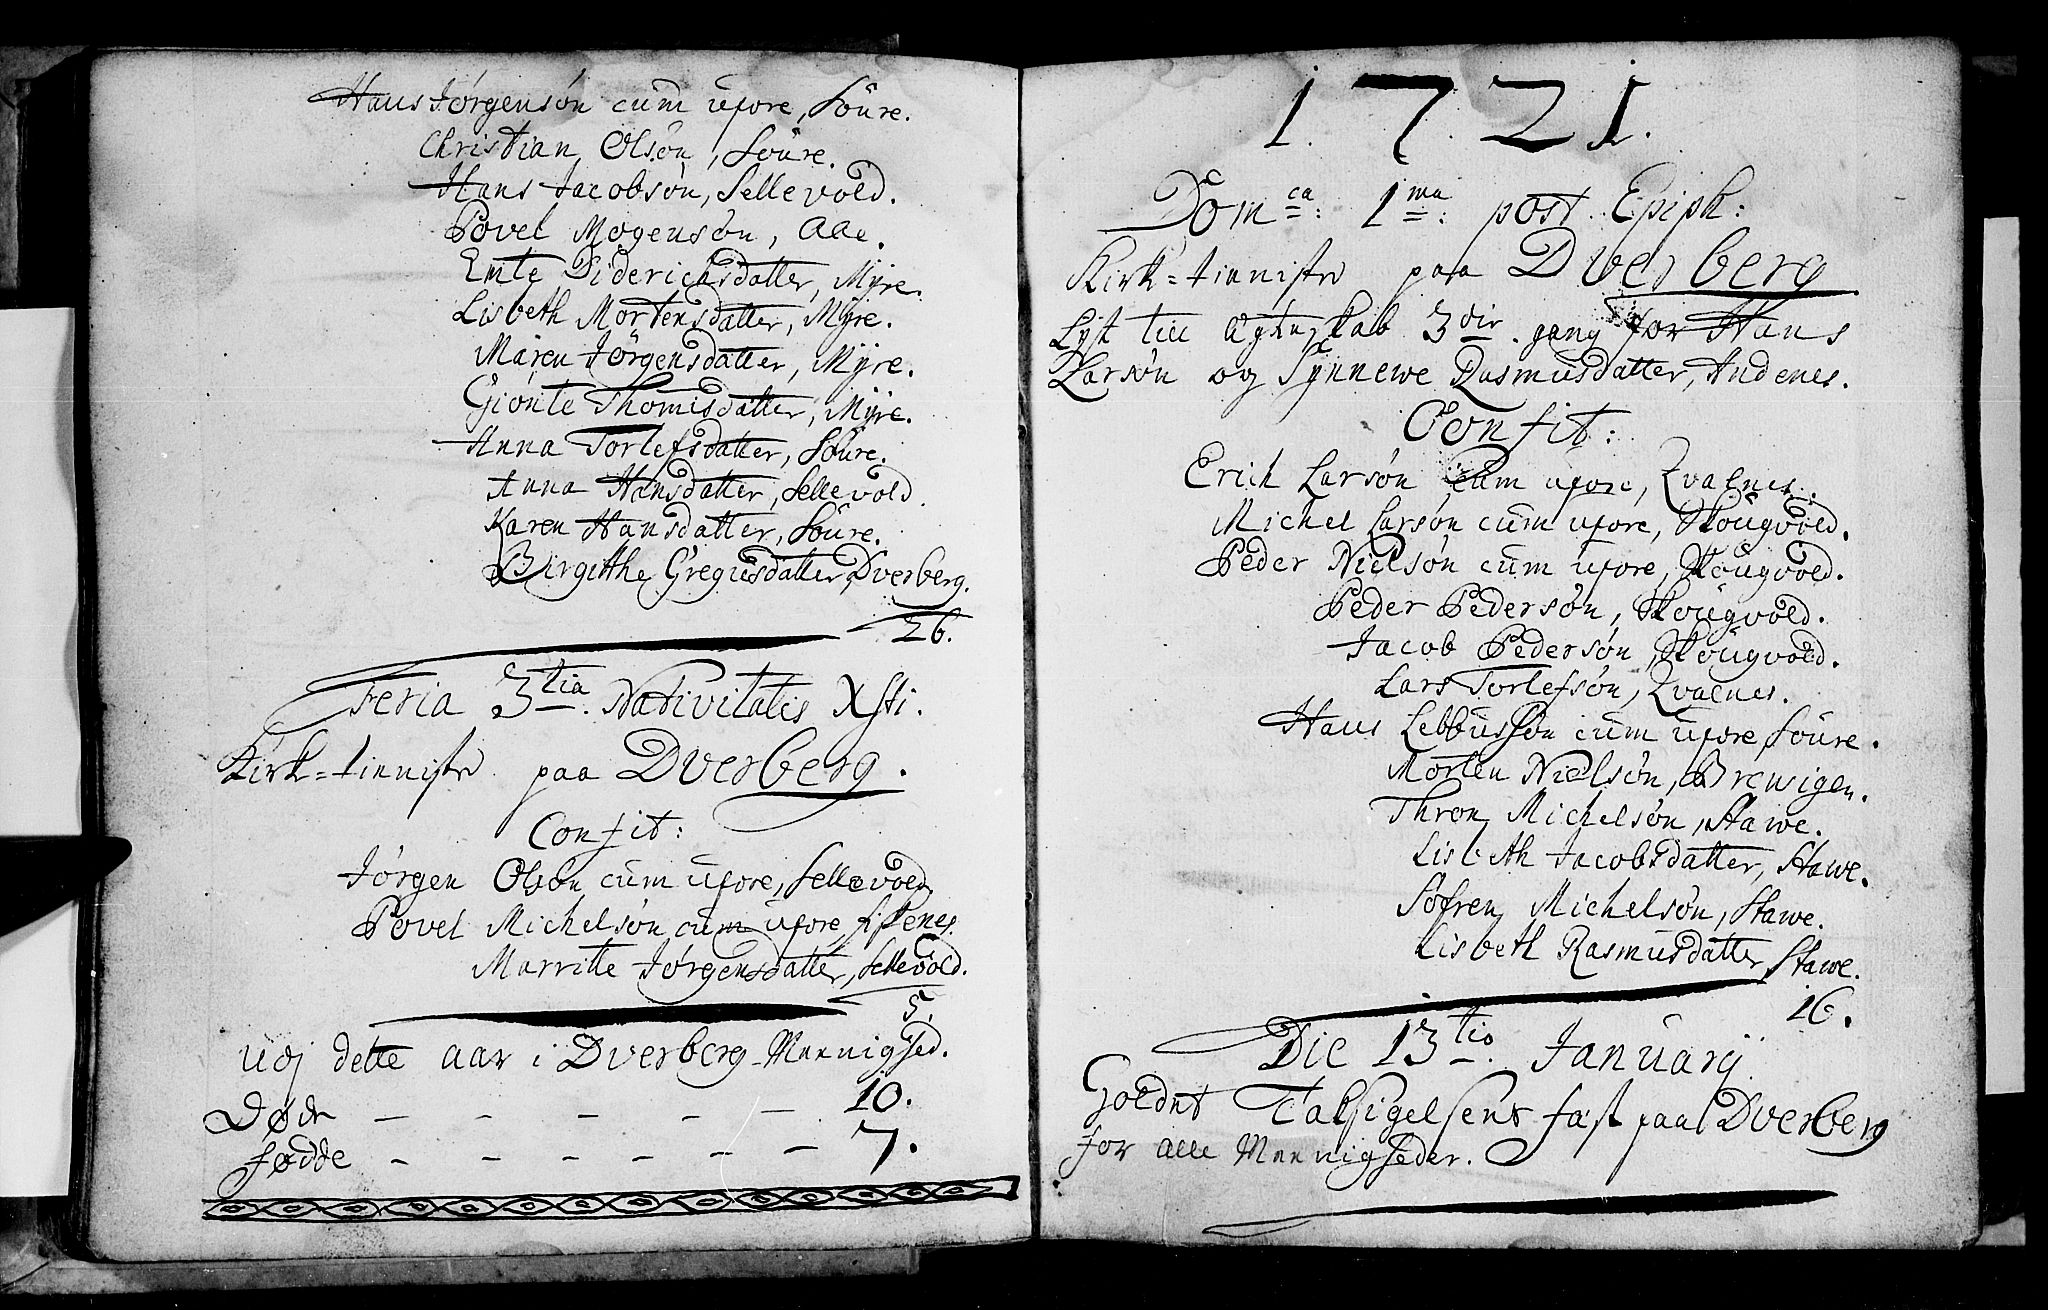 Hans Jørgensøn cum uxore, Soure.
Christian Olsøn, Soure.
Hans Jacobsøn, Sellevold.
Povel Mogensøn, Aae.
Diderichsdatter, Myre.
Lisbeth Mortensdatter, Myre.
Maren Jørgensdatter, Myre.
Giønte Thomisdatter, Myre.
Anna Torlefsdatter, Soure.
Anna Hansdatter, Sellevold.
Karen Hansdatter, Soure.
Birgitthe Gregusdatter, Dverberg.
26.
Feria 3tia. Nativitatis Xsti.
Kirk=tienniste paa Dverberg.
Confit:
Jørgen Olsøn cum uxore, Sellevold.
Povel Michelsøn cum uxore, Fiskenes.
Marritte Jørgensdatter, Sellevold.
5.
Udj dette aar i Dverberg Mennighed.
Døde — — — — — 10.
fødde — — — — — — 7.
1721.
Domca: 1ma: post Epiph:
Kirk=tienniste paa Dverberg
Lyst till Egteskab 3die. gang for Hans
Larsøn og Synnewe Rasmusdatter, Andenes.
Confit:
Erich Larsøn cum uxore, Qvalnes.
Michel Larsøn cum uxore, Skougvold.
Peder Nielsøn cum uxore, Skougvold.
Peder Pedersøn, Skougvold.
Jacob Pedersøn, Skougvold.
Lars Torlefsøn, Qvalnes.
Hans Lebbussøn cum uxore, Soure.
Morten Nielsøn, Brewigen.
Thron Michelsøn, Stawe.
Lisbeth Jacobsdatter, Stawe.
Sofren Michelsøn, Stawe.
Lisbeth Rasmusdatter, Stawe.
16.
Die 13tio. Januarij
Holdet Taksigelsens fæst paa Dverberg
for alle Mennigheder.